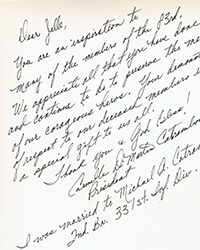 Dear Jelle,
You are an inspiration to
many of the members of the 83rd.
We appreciate all that you have done
and continue to do to preserve the me
of our courageous heros. Your demons
of respect to our deceased members is
a special gift to us all!
Thank you & God Bless!
Camille D. Martin Catrambon
President
I was married to Michael A. Catram
2nd. Bn. 331st. Inf Div.